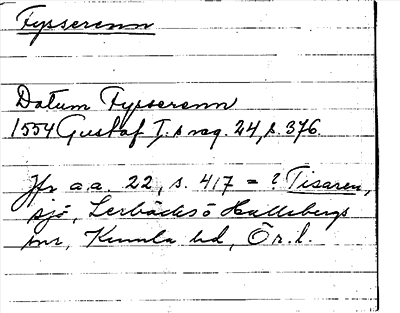 Fysserenn
Datum Fysserenn
1554 Gustaf I:s reg. 24, s. 376.
Jfr a.a. 22, s. 417 = ? Tisaren,
sjö, Lerbäcks o Hallsbergs
snr, Kumla hd, Ör. l.